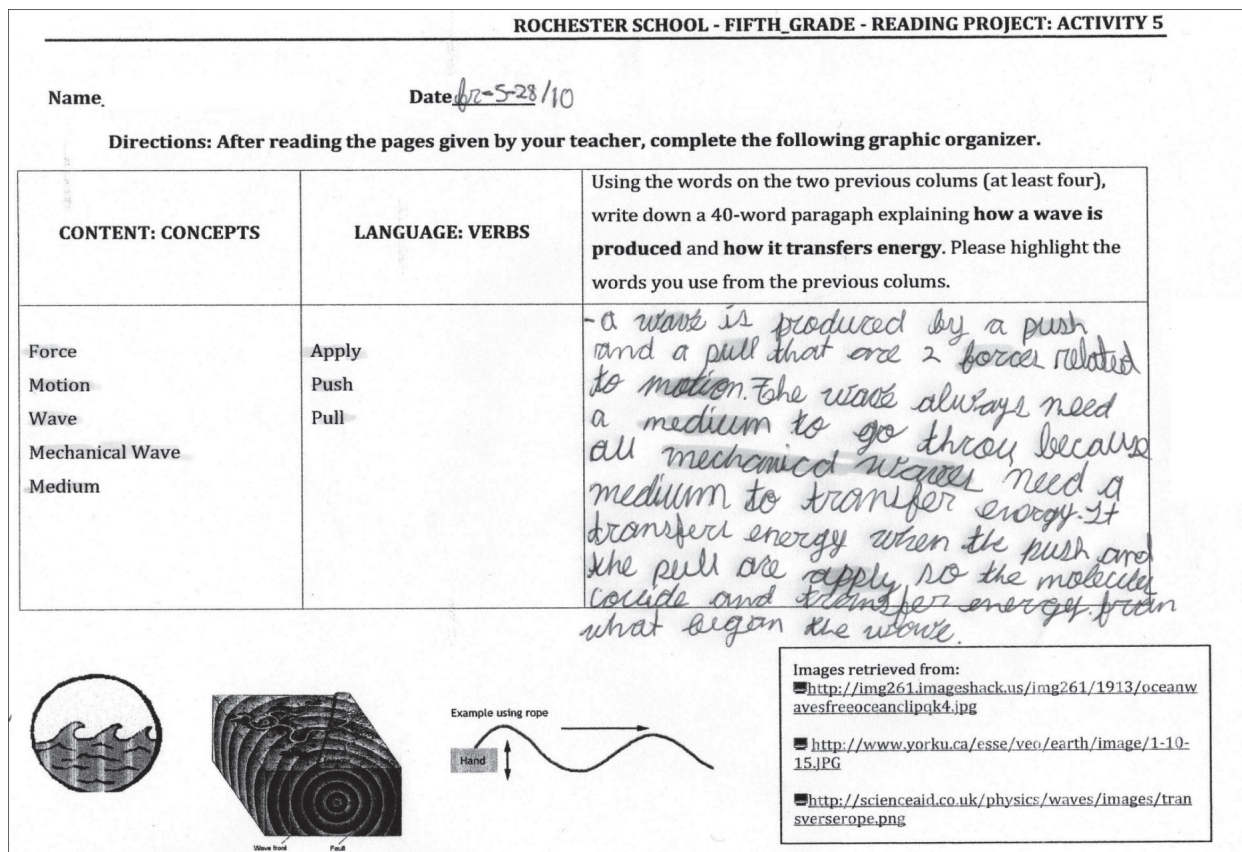 ROCHESTER SCHOOL - FIFTH_GRADE - READING PROJECT: ACTIVITY 5
Name
Date fr-5-28/10
Directions: After reading the pages given by your teacher, complete the following graphic organizer.
CONTENT: CONCEPTS
LANGUAGE: VERBS
Using the words on the two previous colums (at least four),
write down a 40-word paragaph explaining how a wave is
produced and how it transfers energy. Please highlight the
words you use from the previous colums.
Force
Motion
Wave
Mechanical Wave
Medium
Apply
Push
Pull
-a wave is produced by a push
and a pull that are 2 forces related
to motion. The wave always need
a medium to go throu because
all mechanicd waves need a
medium to transfer energy. It
transfers energy when the push and
the pull are apply, so the molecules
collide and transfer energy from
what began the wave.
Example using rope
Hand
Wave front
Fault
Images retrieved from:
http://img261.imageshack.us/img261/1913/oceanw
avesfreeoceanclipqk4.jpg
http://www.yorku.ca/esse/veo/earth/image/1-10-
15.JPG
http://scienceaid.co.uk/physics/waves/images/tran
sverserope.png